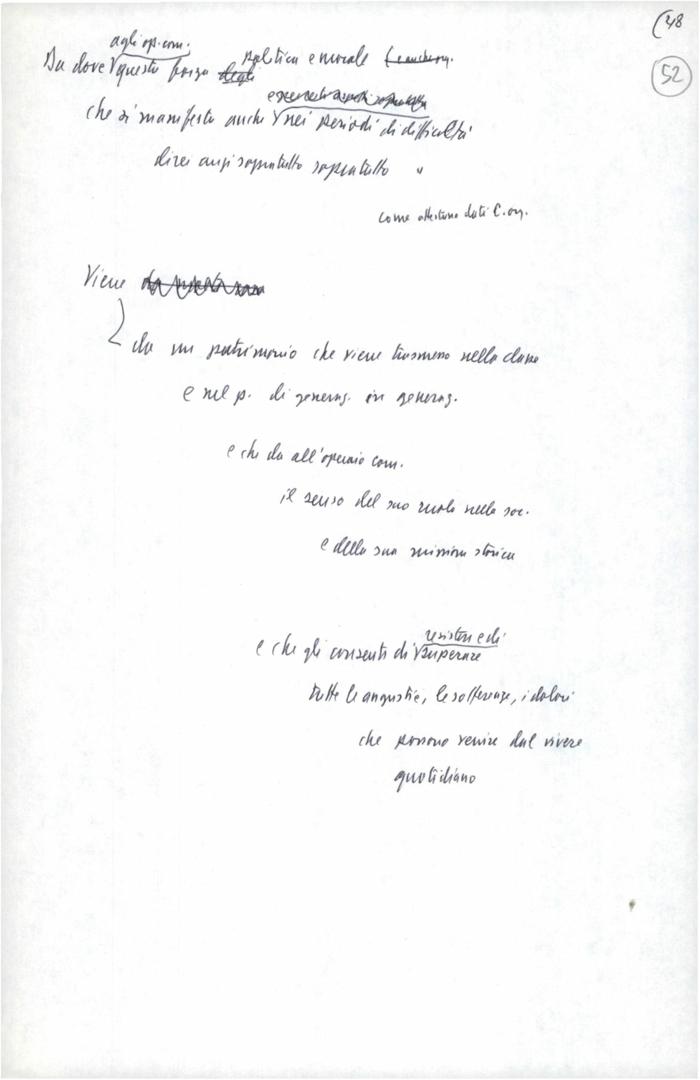 (48
52
agli op. com.
Da dove questa forza degli politica e morale
che si manifesta anche nei periodi di difficoltà
direi anzi soprattutto soprattutto "
come attestano dati C. org.
Viene
da un patrimonio che viene trasmesso nella classe
e nel p. di generaz. in generaz.
e che da all'operaio com.
il senso del suo ruolo nella soc.
e della sua missione storica
resistere e di
e che gli consente di superare
tutte le angustie, le sofferenze, i dolori
che possono venire dal vivere
quotidiano